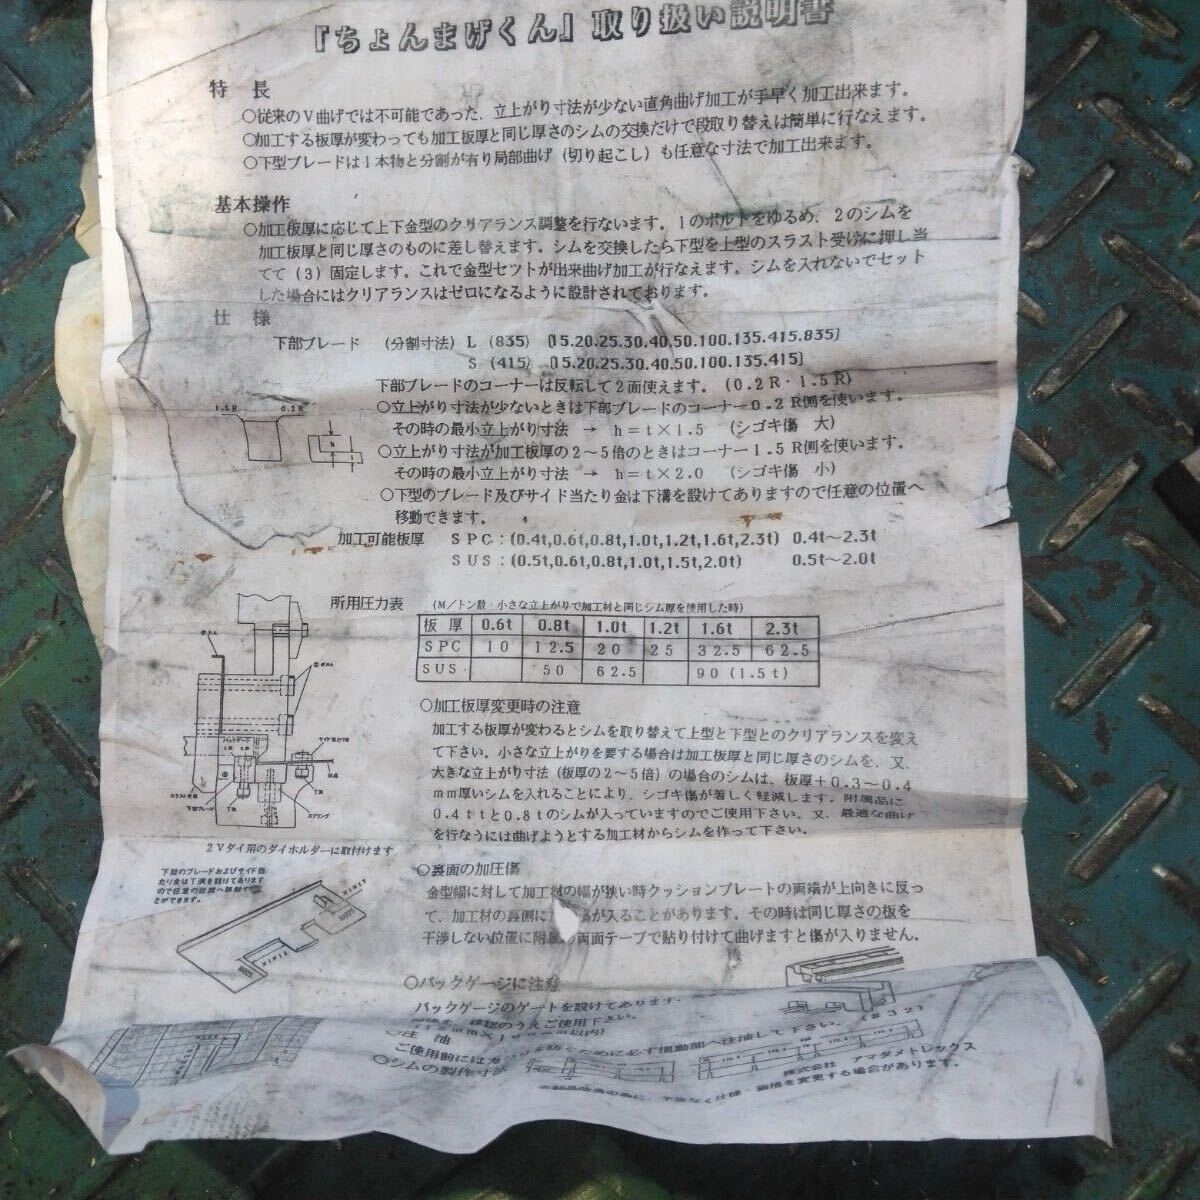 『ちょんまげくん』取り扱い説明書
特 長
○従来のV曲げでは不可能であった、立上がり寸法が少ない直角曲げ加工が手早く加工出来ます。
○加工する板厚が変わっても加工板厚と同じ厚さのシムの交換だけで段取り替えは簡単に行なえます。
○下型ブレードは1本物と分割が有り局部曲げ(切り起こし)も任意な寸法で加工出来ます。
基本操作
○加工板厚に応じて上下金型のクリアランス調整を行ないます。1のボルトをゆるめ、2のシムを
加工板厚と同じ厚さのものに差し替えます。シムを交換したら下型を上型のスラスト受けに押し当
てて(3)固定します。これで金型セツトが出来曲げ加工が行なえます。シムを入れないでセット
した場合にはクリアランスはゼロになるように設計されております。
仕 様
下部ブレード (分割寸法) L (835) 〔15.20.25.30.40.50.100.135.415.835〕
S (415) 〔15.20.25.30.40.50.100.135.415〕
下部ブレードのコーナーは反転して2面使えます。(0.2R・1.5R)
1.5R 0.2R
○立上がり寸法が少ないときは下部ブレードのコーナー0.2R側を使います。
その時の最小立上がり寸法 → h=t×1.5 (シゴキ傷 大)
○立上がり寸法が加工板厚の2～5倍のときはコーナー1.5R側を使います。
その時の最小立上がり寸法 → h=t×2.0 (シゴキ傷 小)
○下型のブレード及びサイド当たり金は下溝を設けてありますので任意の位置へ
移動できます。
加工可能板厚 SPC:(0.4t,0.6t,0.8t,1.0t,1.2t,1.6t,2.3t) 0.4t～2.3t
SUS:(0.5t,0.6t,0.8t,1.0t,1.5t,2.0t) 0.5t～2.0t
所用圧力表 (M/トン数・小さな立上がりで加工材と同じシム厚を使用した時)
板 厚 0.6t 0.8t 1.0t 1.2t 1.6t 2.3t
SPC 10 12.5 20 25 32.5 62.5
SUS 50 62.5 90(1.5t)
②ボルト
バックゲージ
下型ブレード
T溝
T溝
スプリング
2Vダイ用のダイホルダーに取付けます
下型のブレードおよびサイド当
たり金は下溝を設けてあります
ので任意の位置へ移動す
とができます。
○加工板厚変更時の注意
加工する板厚が変わるとシムを取り替えて上型と下型とのクリアランスを変え
て下さい。小さな立上がりを要する場合は加工板厚と同じ厚さのシムを、又、
大きな立上がり寸法(板厚の2～5倍)の場合のシムは、板厚+0.3～0.4
mm厚いシムを入れることにより、シゴキ傷が著しく軽減します。附属品に
0.4ttと0.8tのシムが入っていますのでご使用下さい。又、最適な曲げ
を行なうには曲げようとする加工材からシムを作って下さい。
○裏面の加圧傷
金型幅に対して加工材の幅が狭い時クッションプレートの両端が上向きに反っ
て、加工材の裏側に が入ることがあります。その時は同じ厚さの板を
干渉しない位置に附属 両面テープで貼り付けて曲げますと傷が入りません。
○バックゲージに注意
バックゲージのゲートを設けてあります。
のうえご使用下さい。
○注 油
ご使用前には 防ぐために必ず摺動部へ注油して下さい。(#32)
○シムの製作寸
株式会社 アマダメトレックス
予告なく仕様・価格を変更する場合があります。